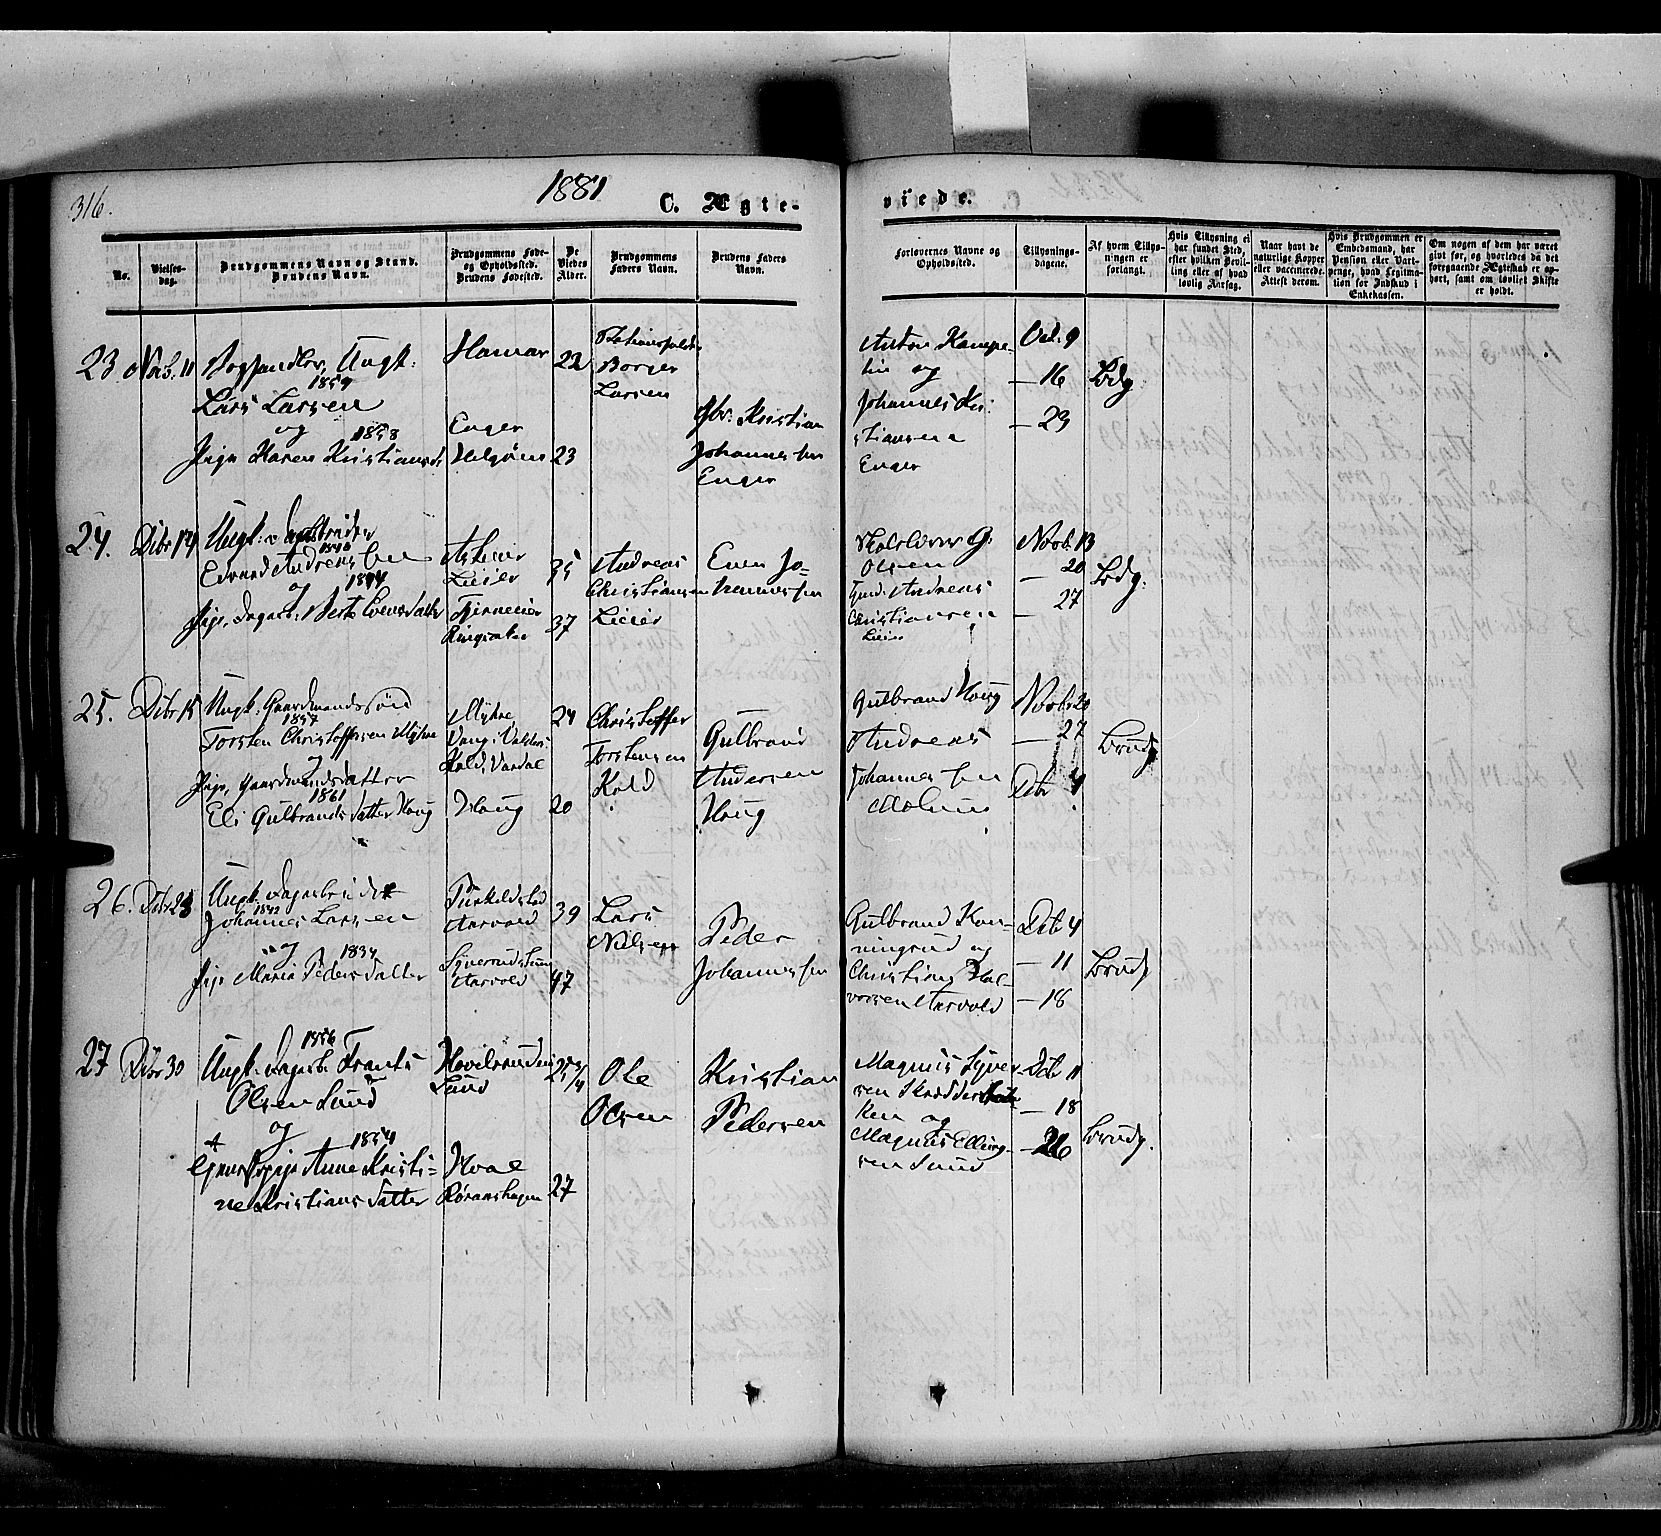 316.
1881
C. Ægte-
viede.
No.
Vielses-
dag.
Brudgommens Navn og Stand.
Brudens Navn.
Brudgommens Føde-
og Opholdssted.
Brudens Fødested.
De
Viedes
Alder.
Brudgommens
Faders Navn.
Brudens Faders
Navn.
Forlovernes Navne og
Opholdssted.
Tillysnings-
dagene.
Af hvem Tillys-
ningen er
forlangt.
Hvis Tillysning ei
har fundet Sted,
efter hvilken Bevil-
ling eller af hvad
lovlig Aarsag.
Naar havt de
naturlige Kopper
eller vaccinerede.
Attest derom.
Hvis Brudgommen er
Embedsmand, har
Pension eller Vart-
penge, hvad Legitima-
tion for Indskud i
Enkekassen.
Om nogen af dem har været
givt før, og hvorledes da det
foregaaende Ægteskab er op-
hørt, samt om lovligt Skifte
er holdt.
23 Novb. 11
Boghandler, Ungk.
1859
Lars Larsen
og 1858
Pige Karen Kristiansdr
Hamar
Enger
22
23
Borger
Larsen
Gbr. Kristian
Johannessen
Enger
Anton Kampe-
og
Johannes Kri-
stiansen
Enger
Oct. 9
— 16
— 23
Brdg.
24. Dcbr 14
Ungk.
Edvard Andreassen
og 1844
Pige, Berte Evensdatter
Lieier
Ringsaker
35
37
Andreas
Christiansen
Lieier
Even Jo-
hannessen
G.
Olsen
Andreas
Christiansen
Lieier
Novb. 13
— 20
— 27
Brdg.
25. Dcbr 15
Ungk. Gaardmandssøn
1857
Torsten Christoffersen Myhre
og
Pige, Gaardmandsdatter
1861
Eli Gulbrandsdatter Houg
Myhre
Vang i Valders
Kold, Vardal
Houg
24
20
Christoffer
Torstensen
Kold
Gulbrand
Andersen
Houg
Gulbrand Houg
Andreas
Johannessen
Novb 20
— 27
Dcb 4
Brudg
26. Dcbr 28
Ungk.
1842
Johannes Larsen
og 1834
Pige Maria Pedersdatter
Aasvold
Aasvold
39
47
Lars
Nilsen
Peder
Johannessen
Gulbrand Kon-
ningrud og
Christian Hal-
vorsen Aasvold
Dcb 4
— 11
— 18
Brudg
27 Dcbr 30
1856
Ungk. Frants
Olsen Sund
og 1854
Pige Anne Kristi-
ne Kristiansdatter
Sund
Hoel
25 3/4
27
Ole
Olsen
Kristian
Pedersen
Magnus Syver-
sen
og
Magnus Elling-
sen Sund
Dcb 11
— 18
— 26
Brudg.